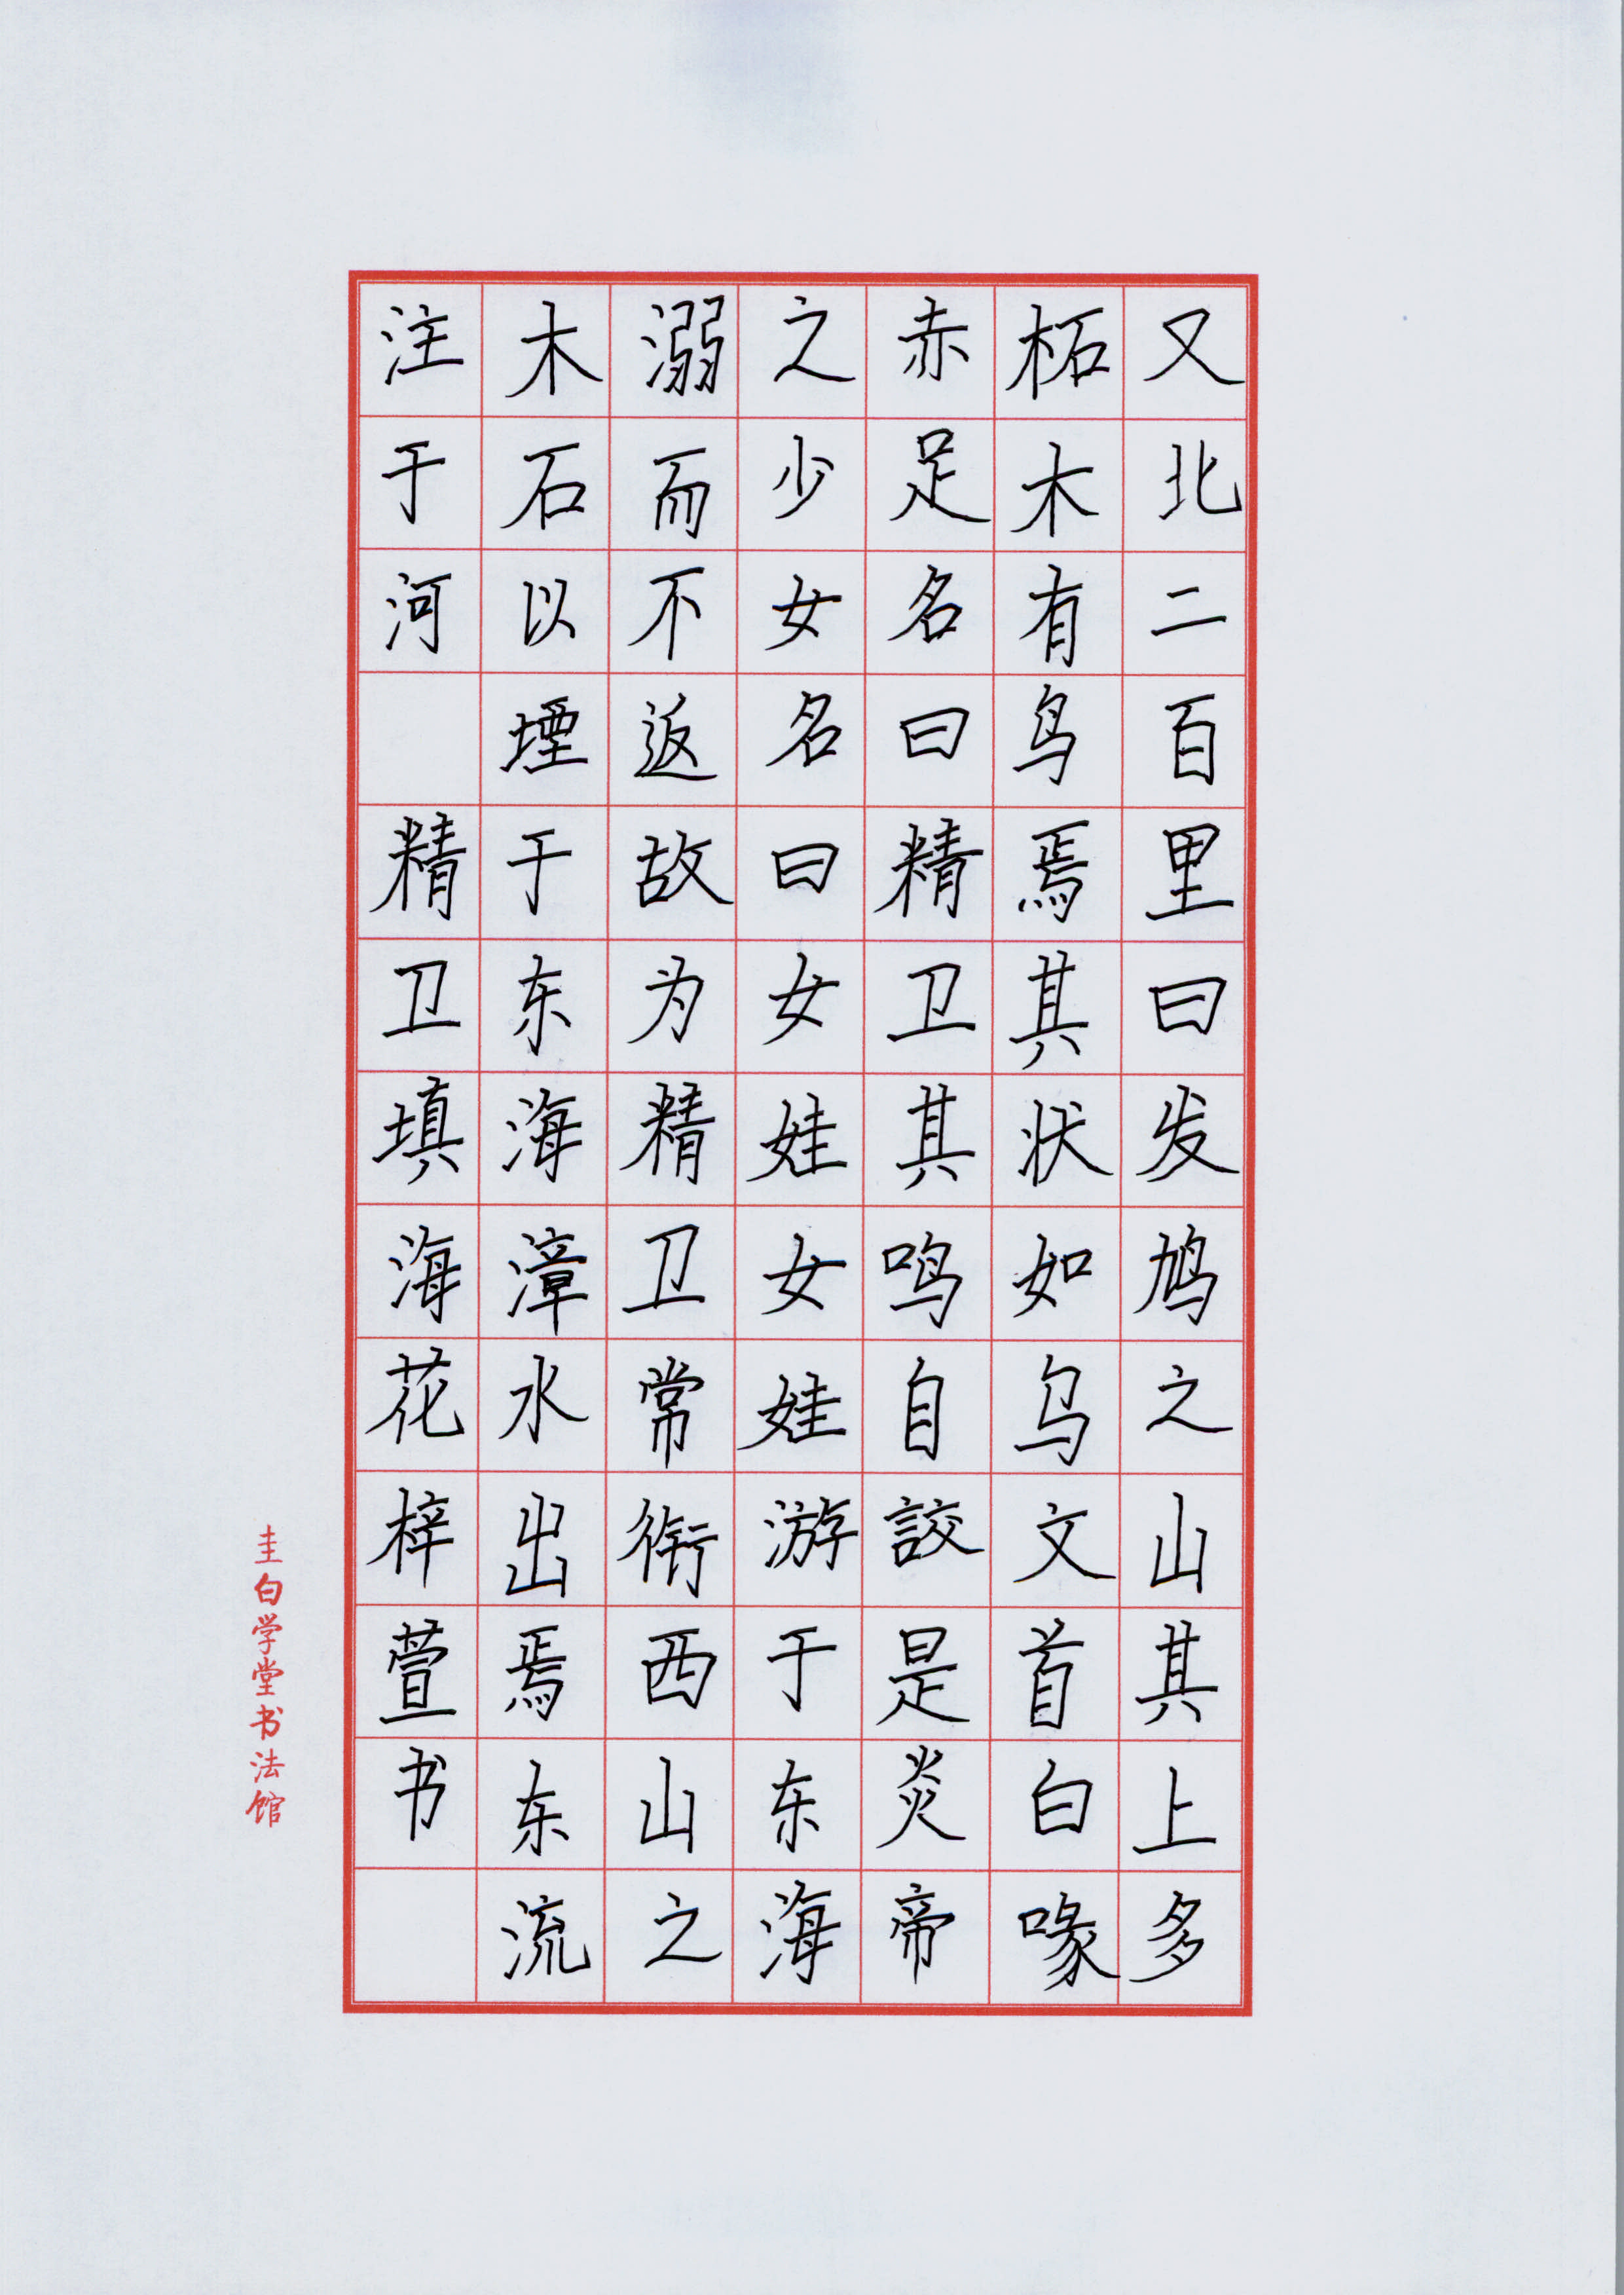 又北二百里曰发鸠之山其上多
柘木有鸟焉其状如乌文首白喙
赤足名曰精卫其鸣自詨是炎帝
之少女名曰女娃女娃游于东海
溺而不返故为精卫常衔西山之
木石以堙于东海漳水出焉东流
注于河 精卫填海花梓萱书
圭白学堂书法馆